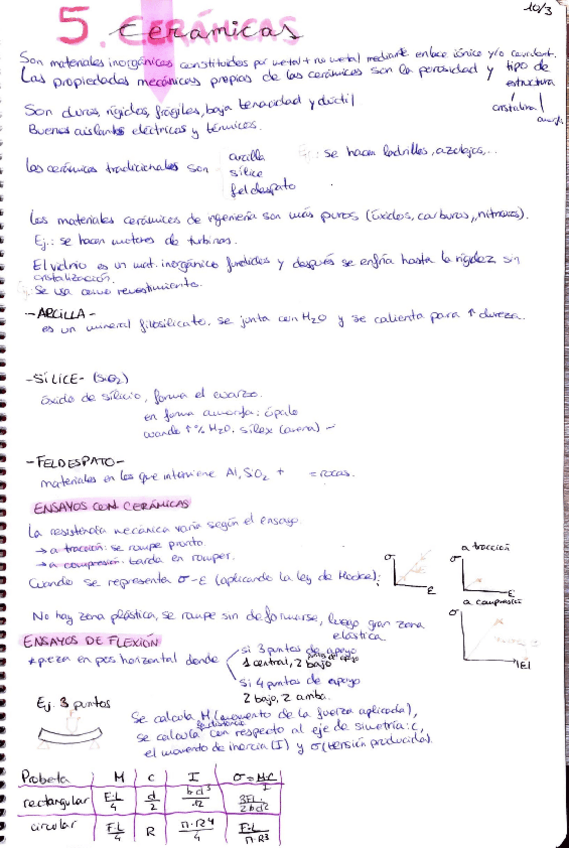 10/3
5. Cerámicas
Son materiales inorgánicos constituidos por metal + no metal mediante enlace iónico y/o covalent.
Las propiedades mecánicas propias de las cerámicas son la porosidad y tipo de
estructura
cristalina amorfa
Son duros, rígidos, frágiles, baja tenacidad y dúctil
Buenos aislantes eléctricos y térmicos.
Las cerámicas tradicionales son
arcilla
sílice
feldespato
: se hacen ladrillos, azulejos,...
Los materiales cerámicos de ingeniería son más puros (óxidos, carburos, nitruros).
Ej.: se hacen motores de turbinas.
El vidrio es un mat. inorgánico fundidos y después se enfría hasta la rigidez sin
cristalización.
Se usa como revestimiento.
-ARCILLA-
es un mineral filosilicato. se junta con H2O y se calienta para ↑ dureza.
-SÍLICE- (SiO2)
óxido de silicio, forma el cuarzo.
en forma amorfa: ópalo
cuando ↑% H2O. sílex (arena)
-FELDESPATO-
materiales en los que interviene Al, SiO2 + = rocas.
ENSAYOS CON CERÁMICAS
La resistencia mecánica varía según el ensayo.
→ a tracción: se rompe pronto.
→ a compresión: tarda en romper.
Cuando se representa σ-ε (aplicando la ley de Hooke):
σ
ε
a tracción
σ
ε
a compresión
σ
|ε|
No hay zona plástica, se rompe sin deformarse, luego gran zona
elástica.
ENSAYOS DE FLEXIÓN
*pieza en pos horizontal donde
si 3 puntos de apoyo
1 central, 2 bajo
si 4 puntos de apoyo
2 bajo, 2 amba.
Ej. 3 puntos
Se calcula M (momento de la fuerza aplicada),
se calcula con respecto al eje de simetría: c,
el momento de inercia (I) y σ (tensión producida).
Probeta | M | c | I | σ = M·c/I
rectangular | F·L/4 | d/2 | bd³/12 | 3FL/2bd²
circular | F·L/4 | R | π·R⁴/4 | F·L/π·R³